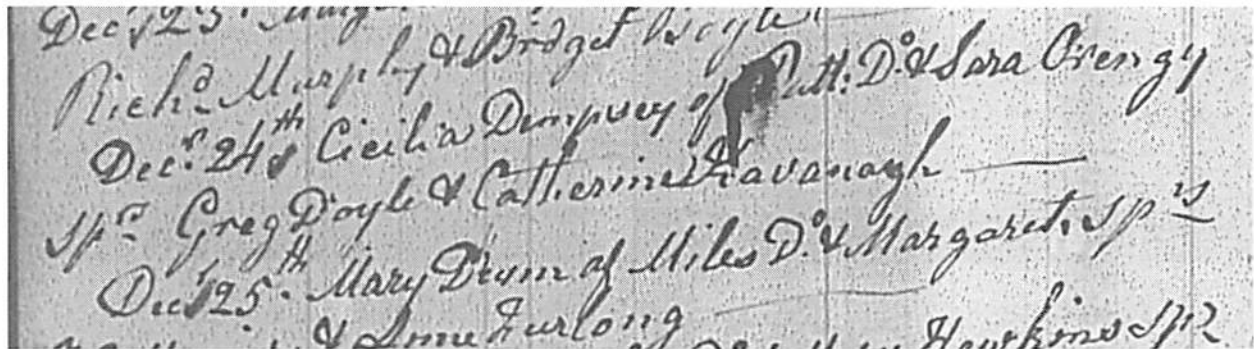 Decr 23d
Richd Murphy & Bridget Doyle
Decr 24th Cicilia Dempsey of Patt: Do & Sara
sprs Greg Doyle & Catherine Kavanagh
Decr 25th Mary of Miles Do & Margaret, sprs
& Anne Furlong
Hawkins sprs